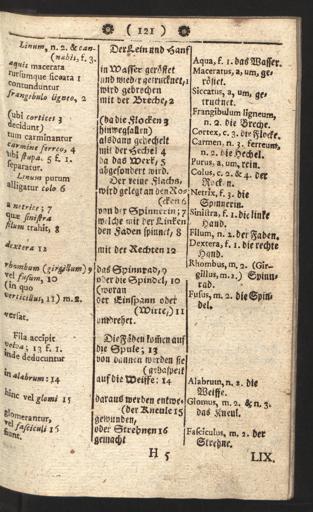 ( 121 )
Linum, n. 2. & can-
(nabis, f. 3.
aquis macerata
rursumque siccata 1
contunduntur
frangibulo ligneo, 2
(ubi cortices 3
decidunt)
tum carminantur
carmine ferreo, 4
ubi stupa. 5 f. 1.
separatur.
Linum purum
alligatur colo 6
a netrice; 7
quæ sinistra
filum trahit, 8
dextera 12
rhombum (girgillum) 9
vel fusum, 10
(in quo
verticillus, 11) m. 2.
versat.
Fila accipit
13 f. 1.
inde deducuntur
in alabrum: 14
hinc vel glomi 15
glomerantur,
vel fasciculi 15
fiunt.
Der Lein und Hanf
in Wasser geröstet
und wieder getrucknet, 1
wird gebrochen
mit der Breche, 2
(da die Flocken 3
hinwegfallen)
alsdann gehechelt
mit der Hechel 4
da das Werk, 5
abgesondert wird.
Der reine Flachs,
wird gelegt an den Ro-
(cken 6
von der Spinnerin; 7
welche mit der Linken
den Faden spinnet, 8
mit der Rechten 12
das Spinnrad, 9
oder die Spindel, 10
(woran
der Einspann oder
(Wirtel, 11
umdrehet.
Die Fäden kommen auf
die Spule; 13
von dannen werden sie
(gehaspelt
auf die Weiffe: 14
daraus werden entwe-
(der Kneule 15
gewunden,
oder Strehnen 16
gemacht
Aqua, f. 1. das Wasser.
Maceratus, a, um, ge-
röstet.
Siccatus, a, um, ge-
trucknet.
Frangibulum ligneum,
n. 2. die Breche.
Cortex, c. 3. die Flocke.
Carmen, n. 3. ferreum,
n. 2. die Hechel.
Purus, a, um, rein.
Colus, c. 2. & 4. der
Rocken.
Netrix, f. 3. die
Spinnerin.
Sinistra, f. 1. die linke
Hand.
Filum, n. 2. der Faden.
Dextera, f. 1. die rechte
Hand.
Rhombus, m. 2. (Gir-
gillus, m. 2.) Spinn-
rad.
Fusus, m. 2. die Spin-
del.
Alabrum, n. 2. die
Weiffe.
Glomus, m. 2. & n. 3.
das Kneul.
Fasciculus, m. 2. der
Strehne.
H 5
LIX.